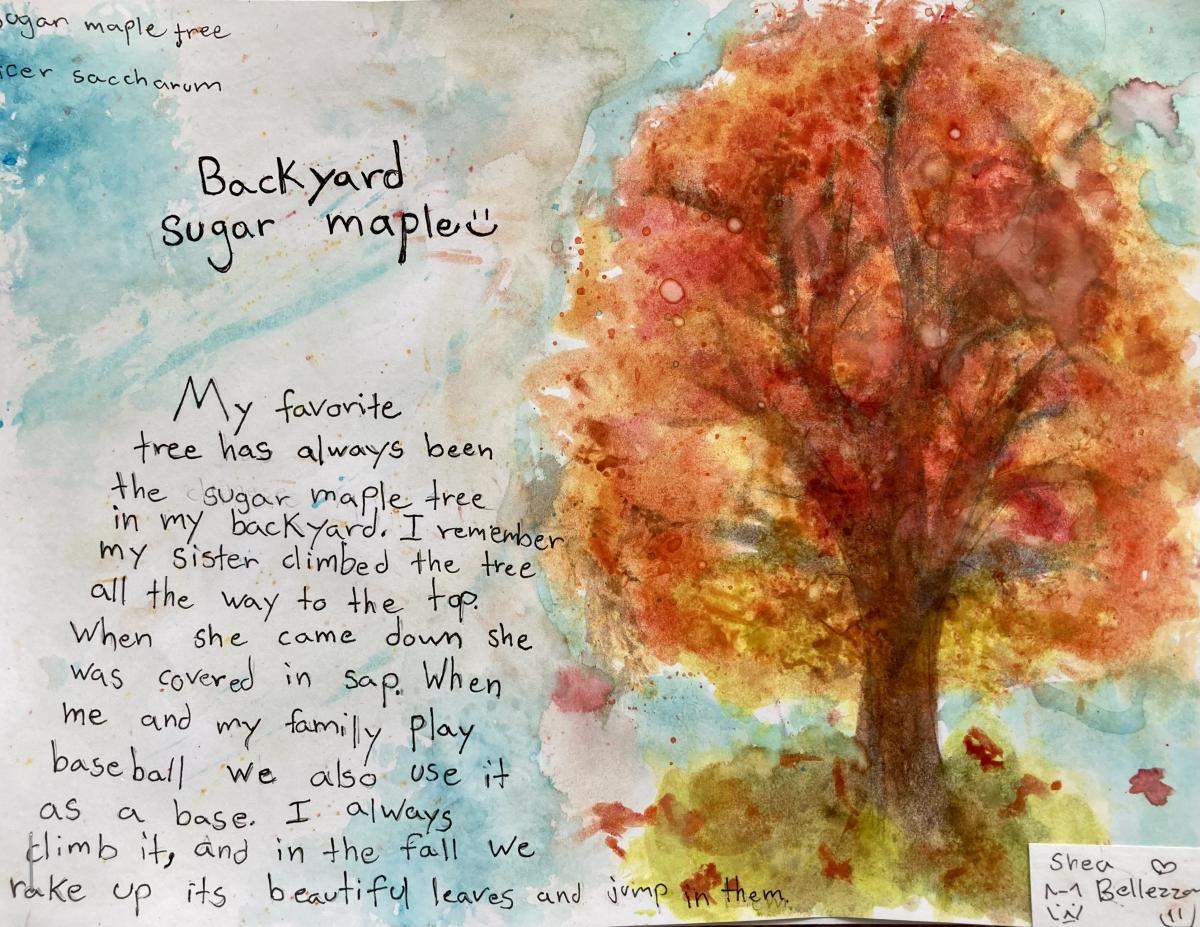 sugar maple tree
acer saccharum
Backyard
sugar maple
My favorite
tree has always been
the sugar maple tree
in my backyard. I remember
my sister climbed the tree
all the way to the top.
When she came down she
was covered in sap. When
me and my familly play
baseball we also use it
as a base. I always
climb it, and in the fall we
rake up its beautiful leaves and jump in them.
Shea
Bellezza